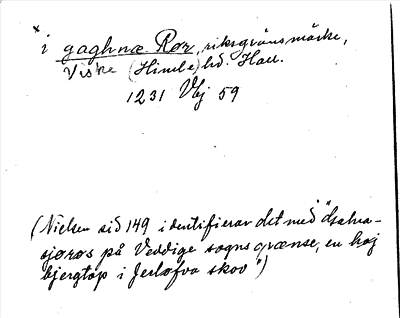 × i gaghnæ Rør, riksgränsmärke,
Viske (Himle) hd. Hall.
1231 Vbj 59
(Nielsen sid 149 identifierar det med "
sjøros på Veddige sogns grænse, en høj
bjergtop i Jerløfva skov")